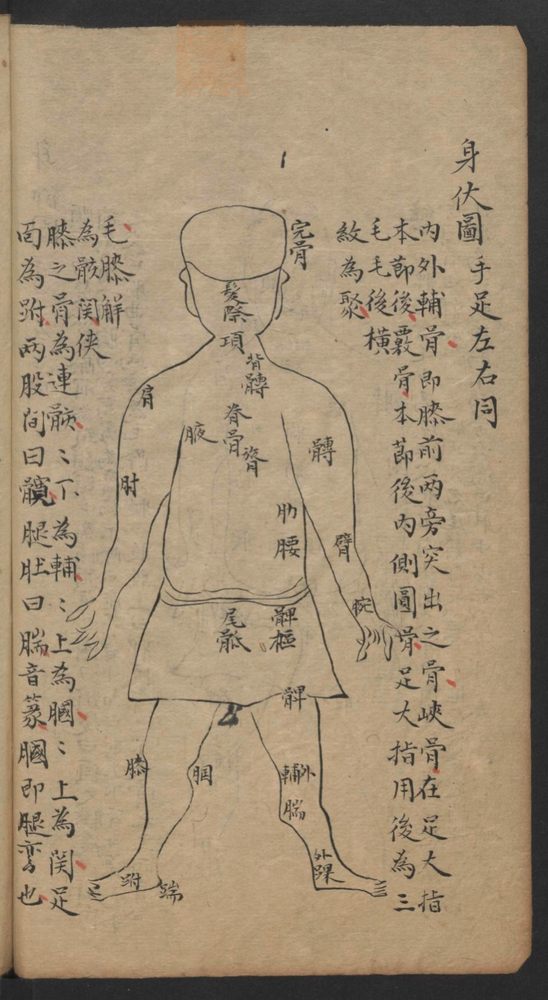 身伏圖 手足左右同
内外輔骨即膝前兩旁突出之骨峽骨在足大指
本節後覈骨本節後内側圓骨足大指用後為三
毛毛後橫
紋為聚
完骨
髮際
項
背
髆
脊骨
膂
肩
腋
髆
肘
肋
腰
臂
腕
尾骶
髀樞
髀
膝
膕
外輔
腨
外踝
跗
足
端
毛膝解
為骸関俠
膝之骨為連骸〻下為輔〻上為膕〻上為関足
面為跗兩股间曰髖腿肚曰腨音篆膕即腿彎也